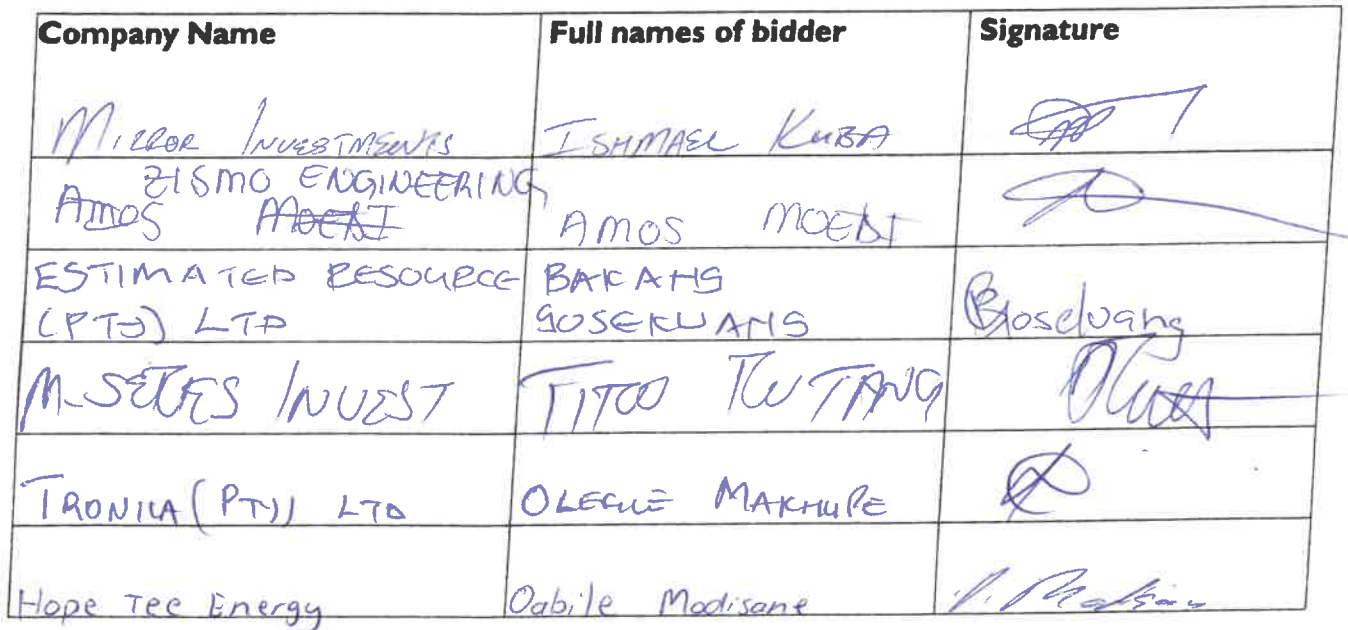 Company Name Full names of bidder Signature
MIRROR INVESTMENTS ISHMAEL KUBA
ZISMO ENGINEERING
AMOS MOEBI AMOS MOEBI
ESTIMATED RESOURCE BAKANG
(PTY) LTD GOSEKWANG
INVEST TITOO
TRONIKA (PTY) LTD MAKHURE
Hope Tee Energy Oabile Modisane